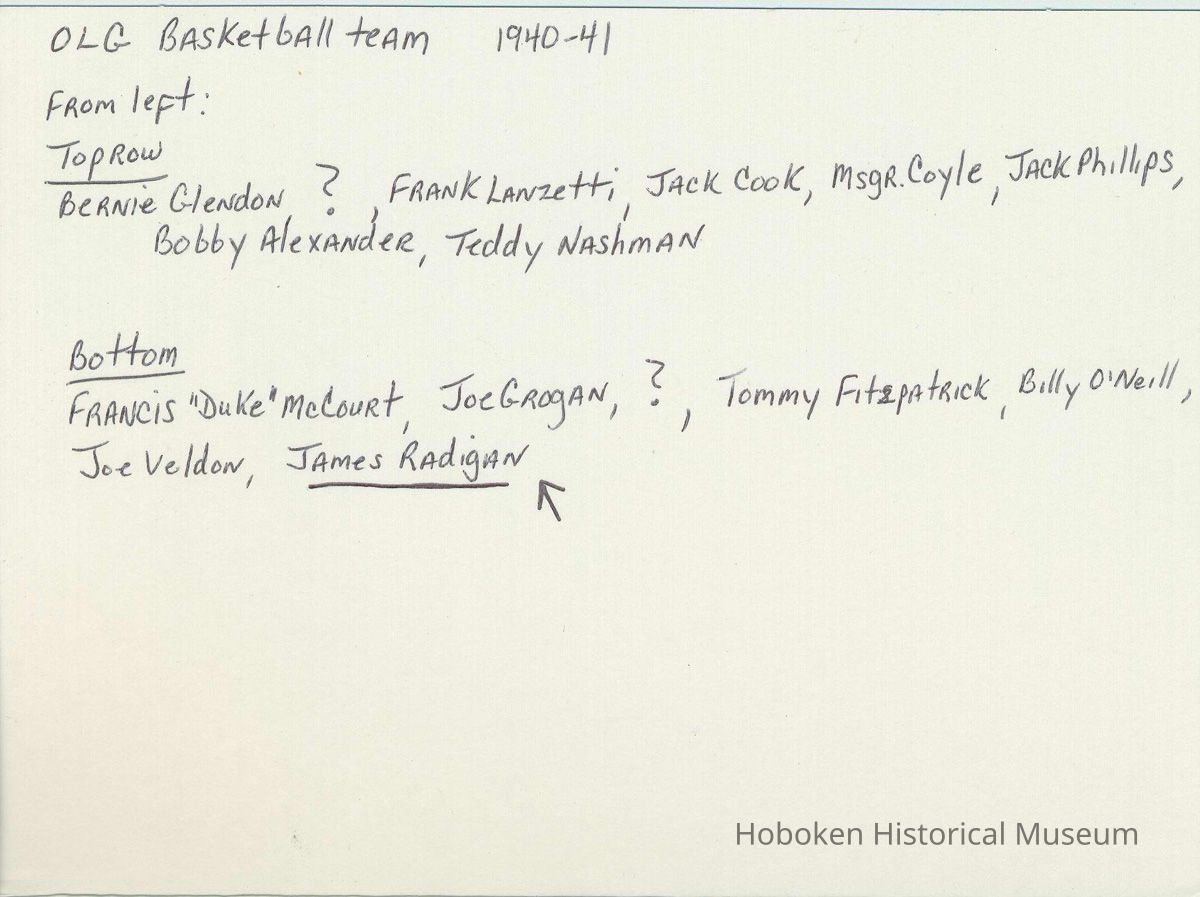 OLG Basketball team 1940-41
From left:
Top Row
Bernie Glendon, ?, Frank Lanzetti, Jack Cook, Msgr. Coyle, Jack Phillips,
Bobby Alexander, Teddy Nashman
Bottom
Francis "Duke" McCourt, Joe Grogan, ?, Tommy Fitzpatrick, Billy O'Neill,
Joe Veldon, James Radigan
Hoboken Historical Museum